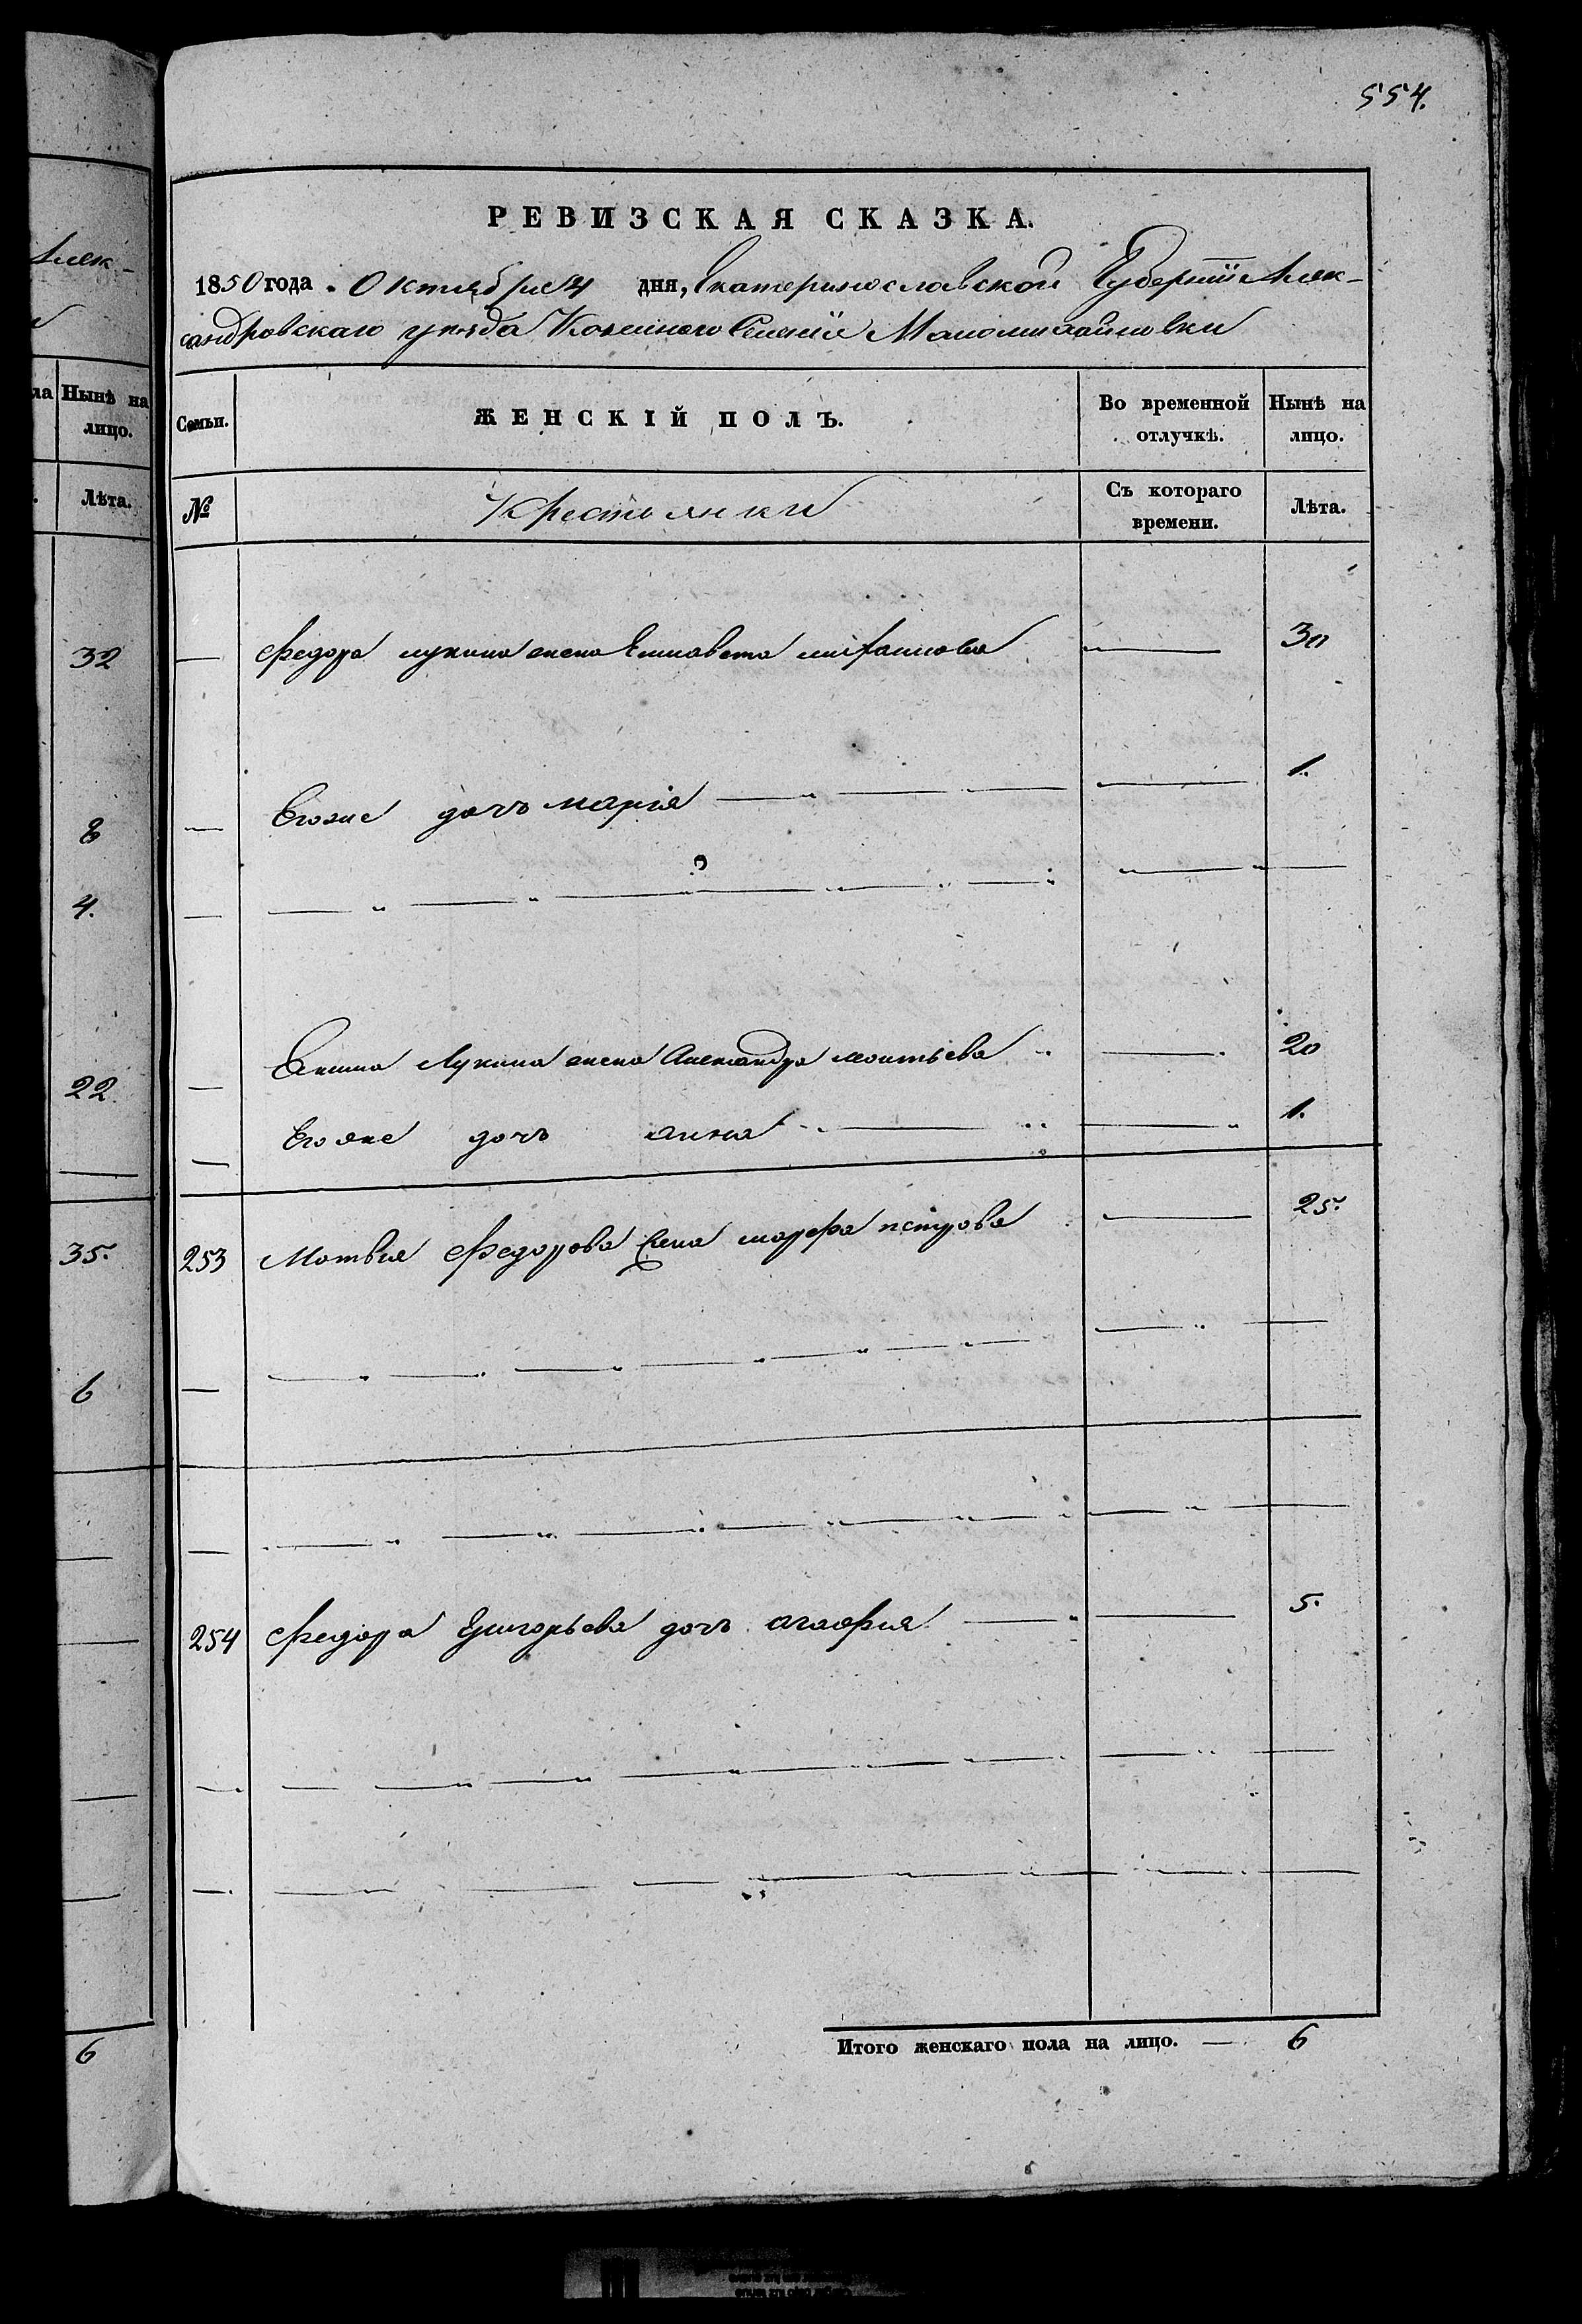 554.
РЕВИЗСКАЯ СКАЗКА.
1850 года Октября 4 дня, Екатеринославской Губерніи Алек-
сандровскаго уезда Казеннаго Селенія Маломихайловки
Семьи. ЖЕНСКІЙ ПОЛЪ. Во временной отлучкѣ. Нынѣ на лицо.
№ Крестьянки Съ котораго времени. Лѣта.
Федора Лукина жена Елисавета 30
Егоже дочь Марія 1.
Лукина жена Александра Леонтьева 20
Егоже дочь Анна 1.
253 Матвея Федорова жена Марфа Петрова 25.
254 Федора Григорьева дочь Агафия 5.
Итого женскаго пола на лицо. 6
Алек-
ла Нынѣ на лицо.
Лѣта.
32
8
4.
22
35.
6
6